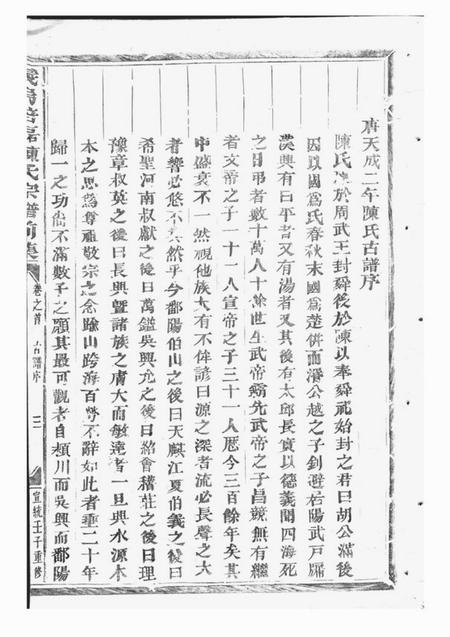 唐天成二年陳氏古譜序
陳氏 於周武王封舜後於陳以奉舜祀始封之君曰胡公滿後
因以國爲氏春秋末國爲楚併而湣公越之子釗避居陽武戸牖
漢興有曰平者又有湯者又其後有太邱長寔以德義聞四海死
之日弔者數十萬人十餘世生武帝霸先武帝之子昌 無有繼
者文帝之子一十一人宣帝之子三十一人歷今三百餘年矣其
中盛衰不一然視他族大有不侔諺曰源之深者流必長聲之大
者響必悠不其然乎今鄱陽伯山之後曰天麒江夏伯義之後曰
希聖河南叔獻之後曰萬鎰吳興允之後曰紹會稽莊之後曰理
豫章叔英之後曰長興曁諸族之膚大而敏達者一旦興水源木
本之思爲尊祖敬宗之念踰山跨海百勞不辭如此者垂二十年
歸一之功尙不滿數子之願其最可觀者自潁川而吳興而鄱陽
陳氏宗譜前集
卷之首
古譜序
三
宣統壬子重修